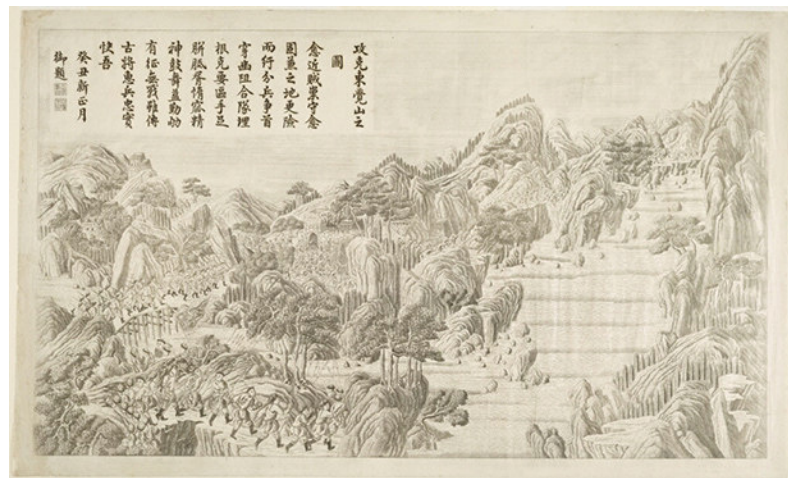 攻克東覺山之
圖
愈近賊巢守愈
固兼之地更險
而分兵爭首
穿幽阻合隊埋
根克要區手足
胼胝胥精
神鼓舞益勤劬
有征無戰雖傳
古將惠兵忠實
快吾
癸丑新正月
御題